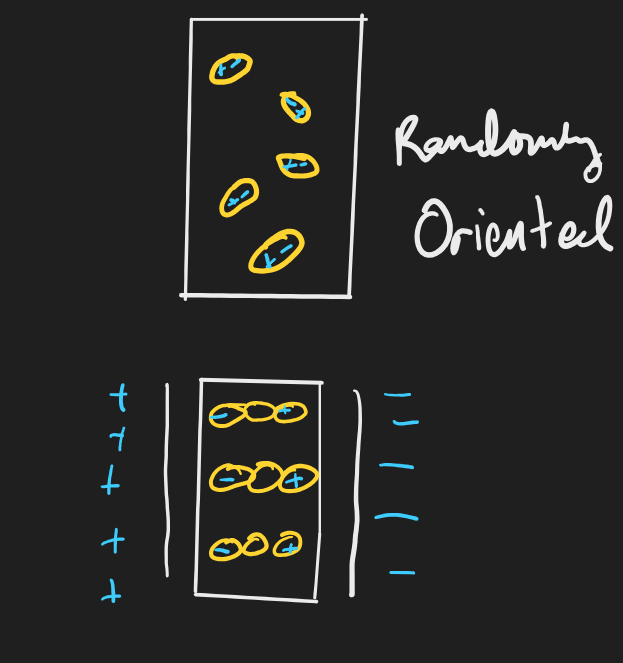 + -
- +
+ -
+ -
+ -
Randomly
Oriented
+ - + -
+ -
+ - + -
+ -
+ - + -